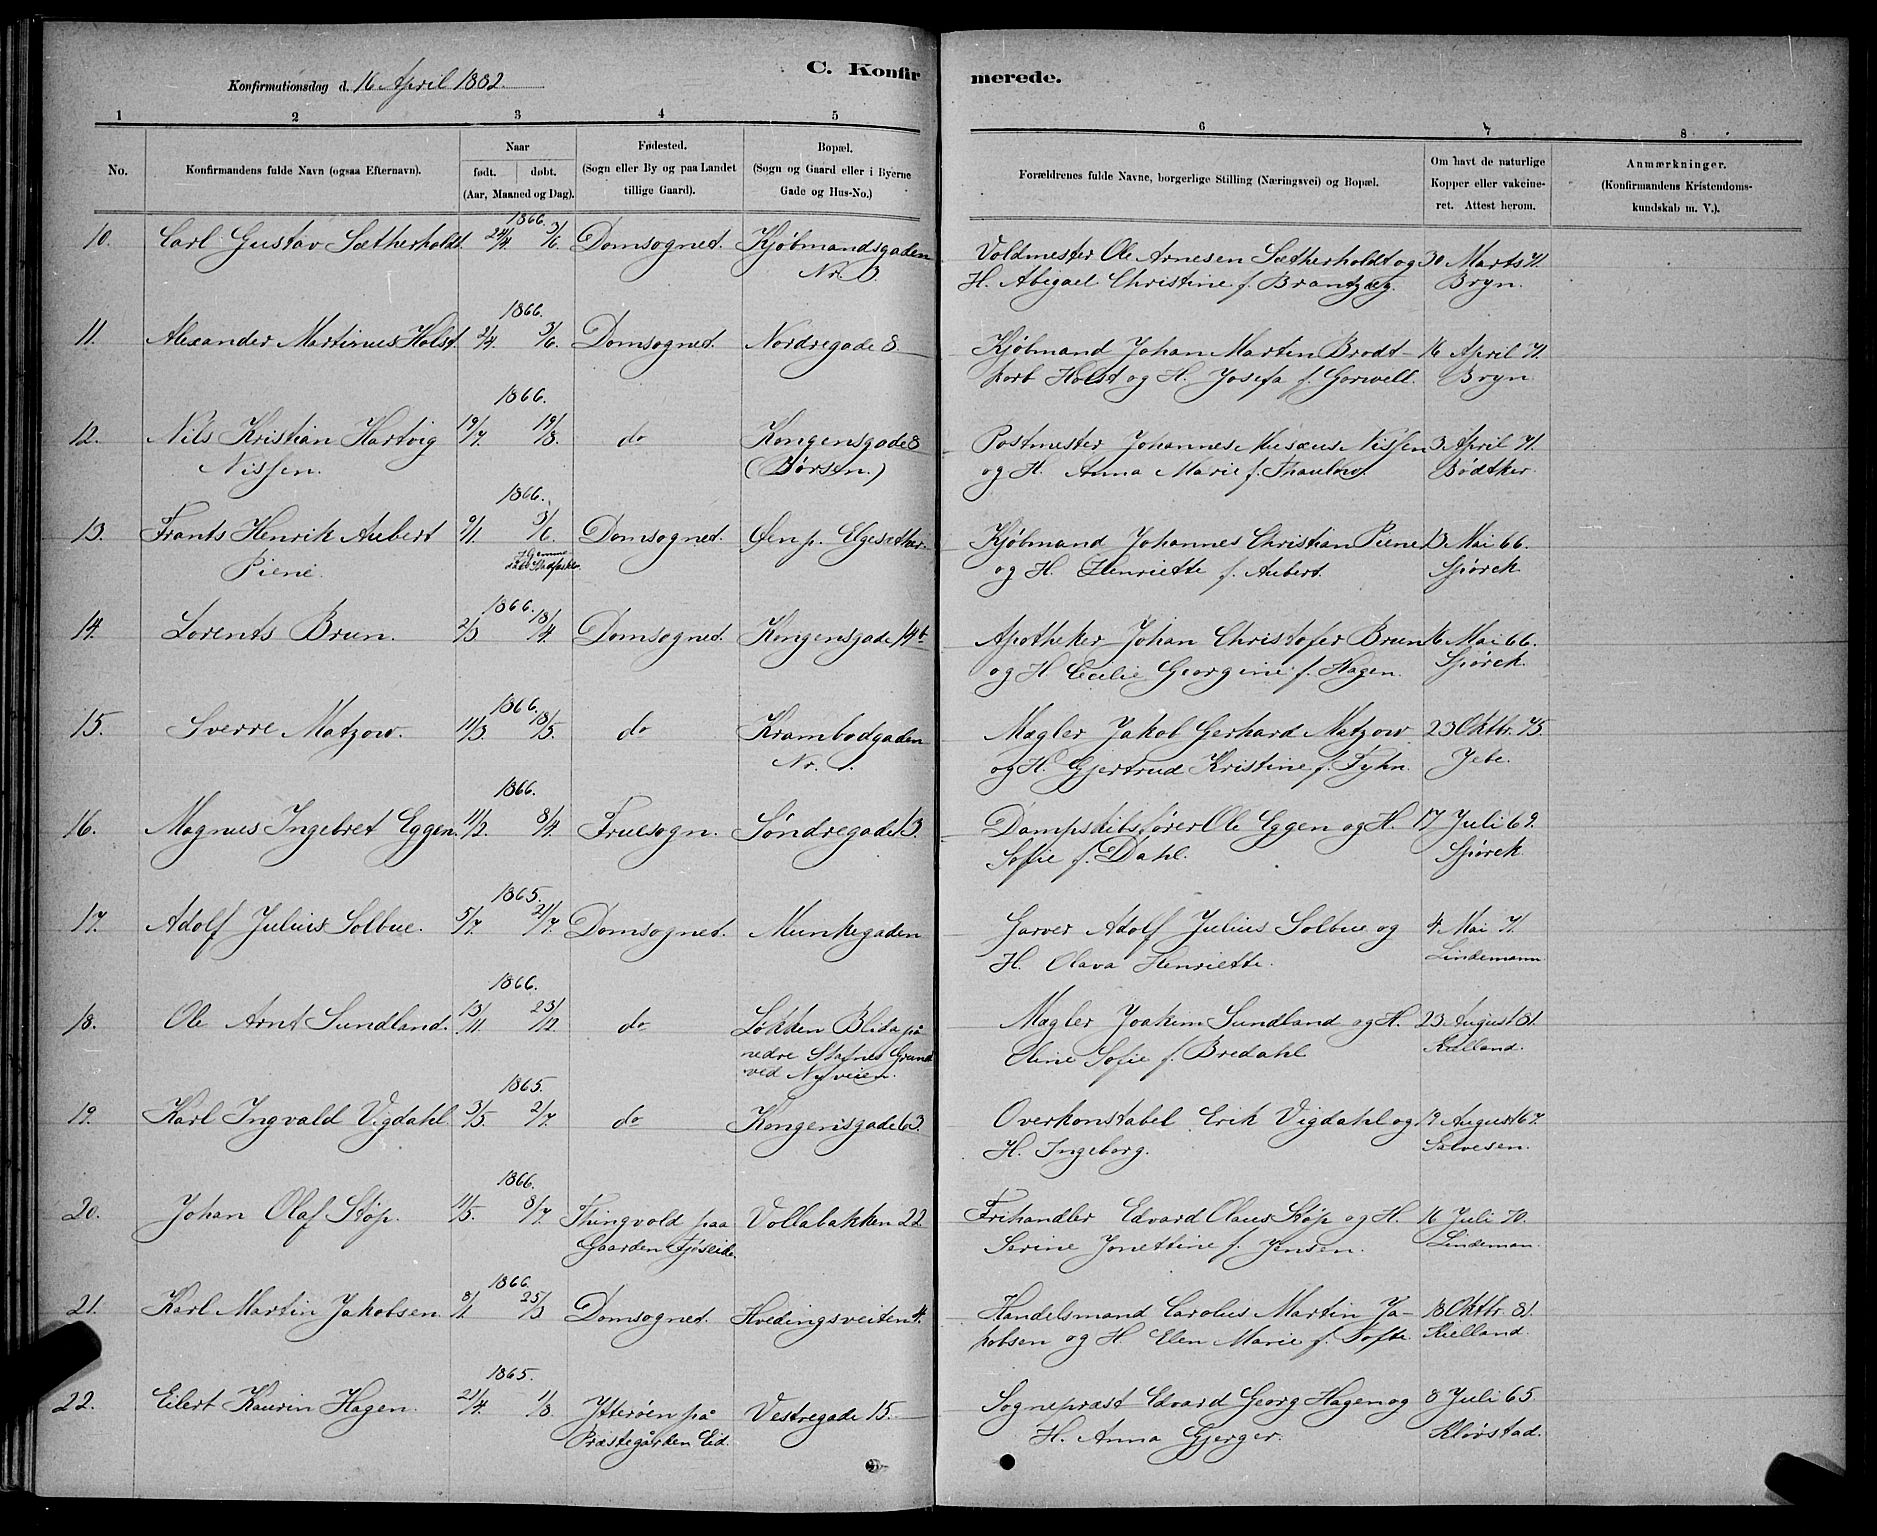 C. Konfirmerede.
Konfirmationsdag d. 16 April 1882.
1 2 3 4 5 6 7 8
No. Konfirmandens fulde Navn (ogsaa Efternavn). Naar født. døbt. (Aar, Maaned og Dag). Fødested. (Sogn eller By og paa Landet tillige Gaard). Bopæl. (Sogn og Gaard eller i Byerne Gade og Hus-No.) Forældrenes fulde Navne, borgerlige Stilling (Næringsvei) og Bopæl. Om havt de naturlige Kopper eller vakcineret. Attest herom. Anmærkninger. (Konfirmandens Kristendomskundskab m. V.).
1866.
10. Carl Gustav Sætherholdt. 24/4. 3/6. Domsognet. Kjøbmandsgaden Voldmester Ole Arnesen Sætherholdt og 30 Marts 71.
Nr. 3. H. Abigael Christine f. Brantzæg. Bryn.
1866.
11. Alexander Martinus Holst. 2/4. 3/6. Domsognet. Nordregade 8. Kjøbmand Johan Martin Brodt- 16 April 71.
korb Holst og H. Josefa f. Gorwell. Bryn.
1866.
12. Nils Kristian Hartvig 19/7. 19/8. do Kongensgade 8 Postmester Johannes Musæus Nissen 3 April 71.
Nissen. (Børstn.) og H. Anna Marie f. Thaulow. Bødtker.
1866.
13. Frants Henrik Aubert 9/1. 3/6. Domsognet. Øen p. Elgesæther. Kjøbmand Johannes Christian Piene 13 Mai 66.
Piene. og H. Henriette f. Aubert. Spørck.
1866.
14. Lorents Brun. 2/3 18/4. Domsognet. Kongensgade 14b Apotheker Johan Christofer Brun 16 Mai 66.
og H. Cecilie Georgine f. Hagen. Spørck.
1866.
15. Sverre Matzow. 11/3 18/5. do Krambodgaden Mægler Jakob Gerhard Matzow 23 Oktbr. 75.
Nr. 1. og H. Gjertrud Kristine f. Tyhn. Jebe.
1866.
16. Magnus Ingebret Eggen. 11/2. 8/4. Fruesogn. Søndregade 13. Dampskibsfører Ole Eggen og H. 17 Juli 69.
Sofie f. Dahl. Spørck.
1865.
17. Adolf Julius Solbue. 5/7. 21/7. Domsognet. Munkegaden Garver Adolf Julius Solbue og 4 Mai 71.
H. Olava Henriette. Lindemann.
1866.
18. Ole Arnt Sundland. 13/11. 23/12. do Løkken Blida på Mægler Joakim Sundland og H. 23 August 81.
nedre Stavnes Grund Oline Sofie f. Bredahl Kielland.
ved Nyveien.
1865.
19. Karl Ingvald Vigdahl. 3/5. 2/7. do Kongensgade 63. Overkonstabel Erik Vigdahl og 19 August 67.
H. Ingeborg. Salvesen.
1866.
20. Johan Olaf Støp. 11/5. 8/7. Thingvold paa Vollabakken 22 Frihandler Edvard Olaus Støp og H. 16 Juli 70.
Gaarden Fjøseide. Serine Jonettine f. Jensen. Lindeman.
1866.
21. Karl Martin Jakobsen. 8/1. 25/3. Domsognet. Hvedingsveiten 4. Handelsmand Carolus Martin Ja- 18 Oktbr. 81.
kobsen og H. Elen Marie f. Tofte. Kielland.
1865.
22. Eilert Kaurin Hagen. 21/4. 1/8. Ytterøen på Vestregade 15. Sogneprest Edvard Georg Hagen og 8 Juli 65
Præstegården Eid. H. Anna Gjerger. Kløvstad.